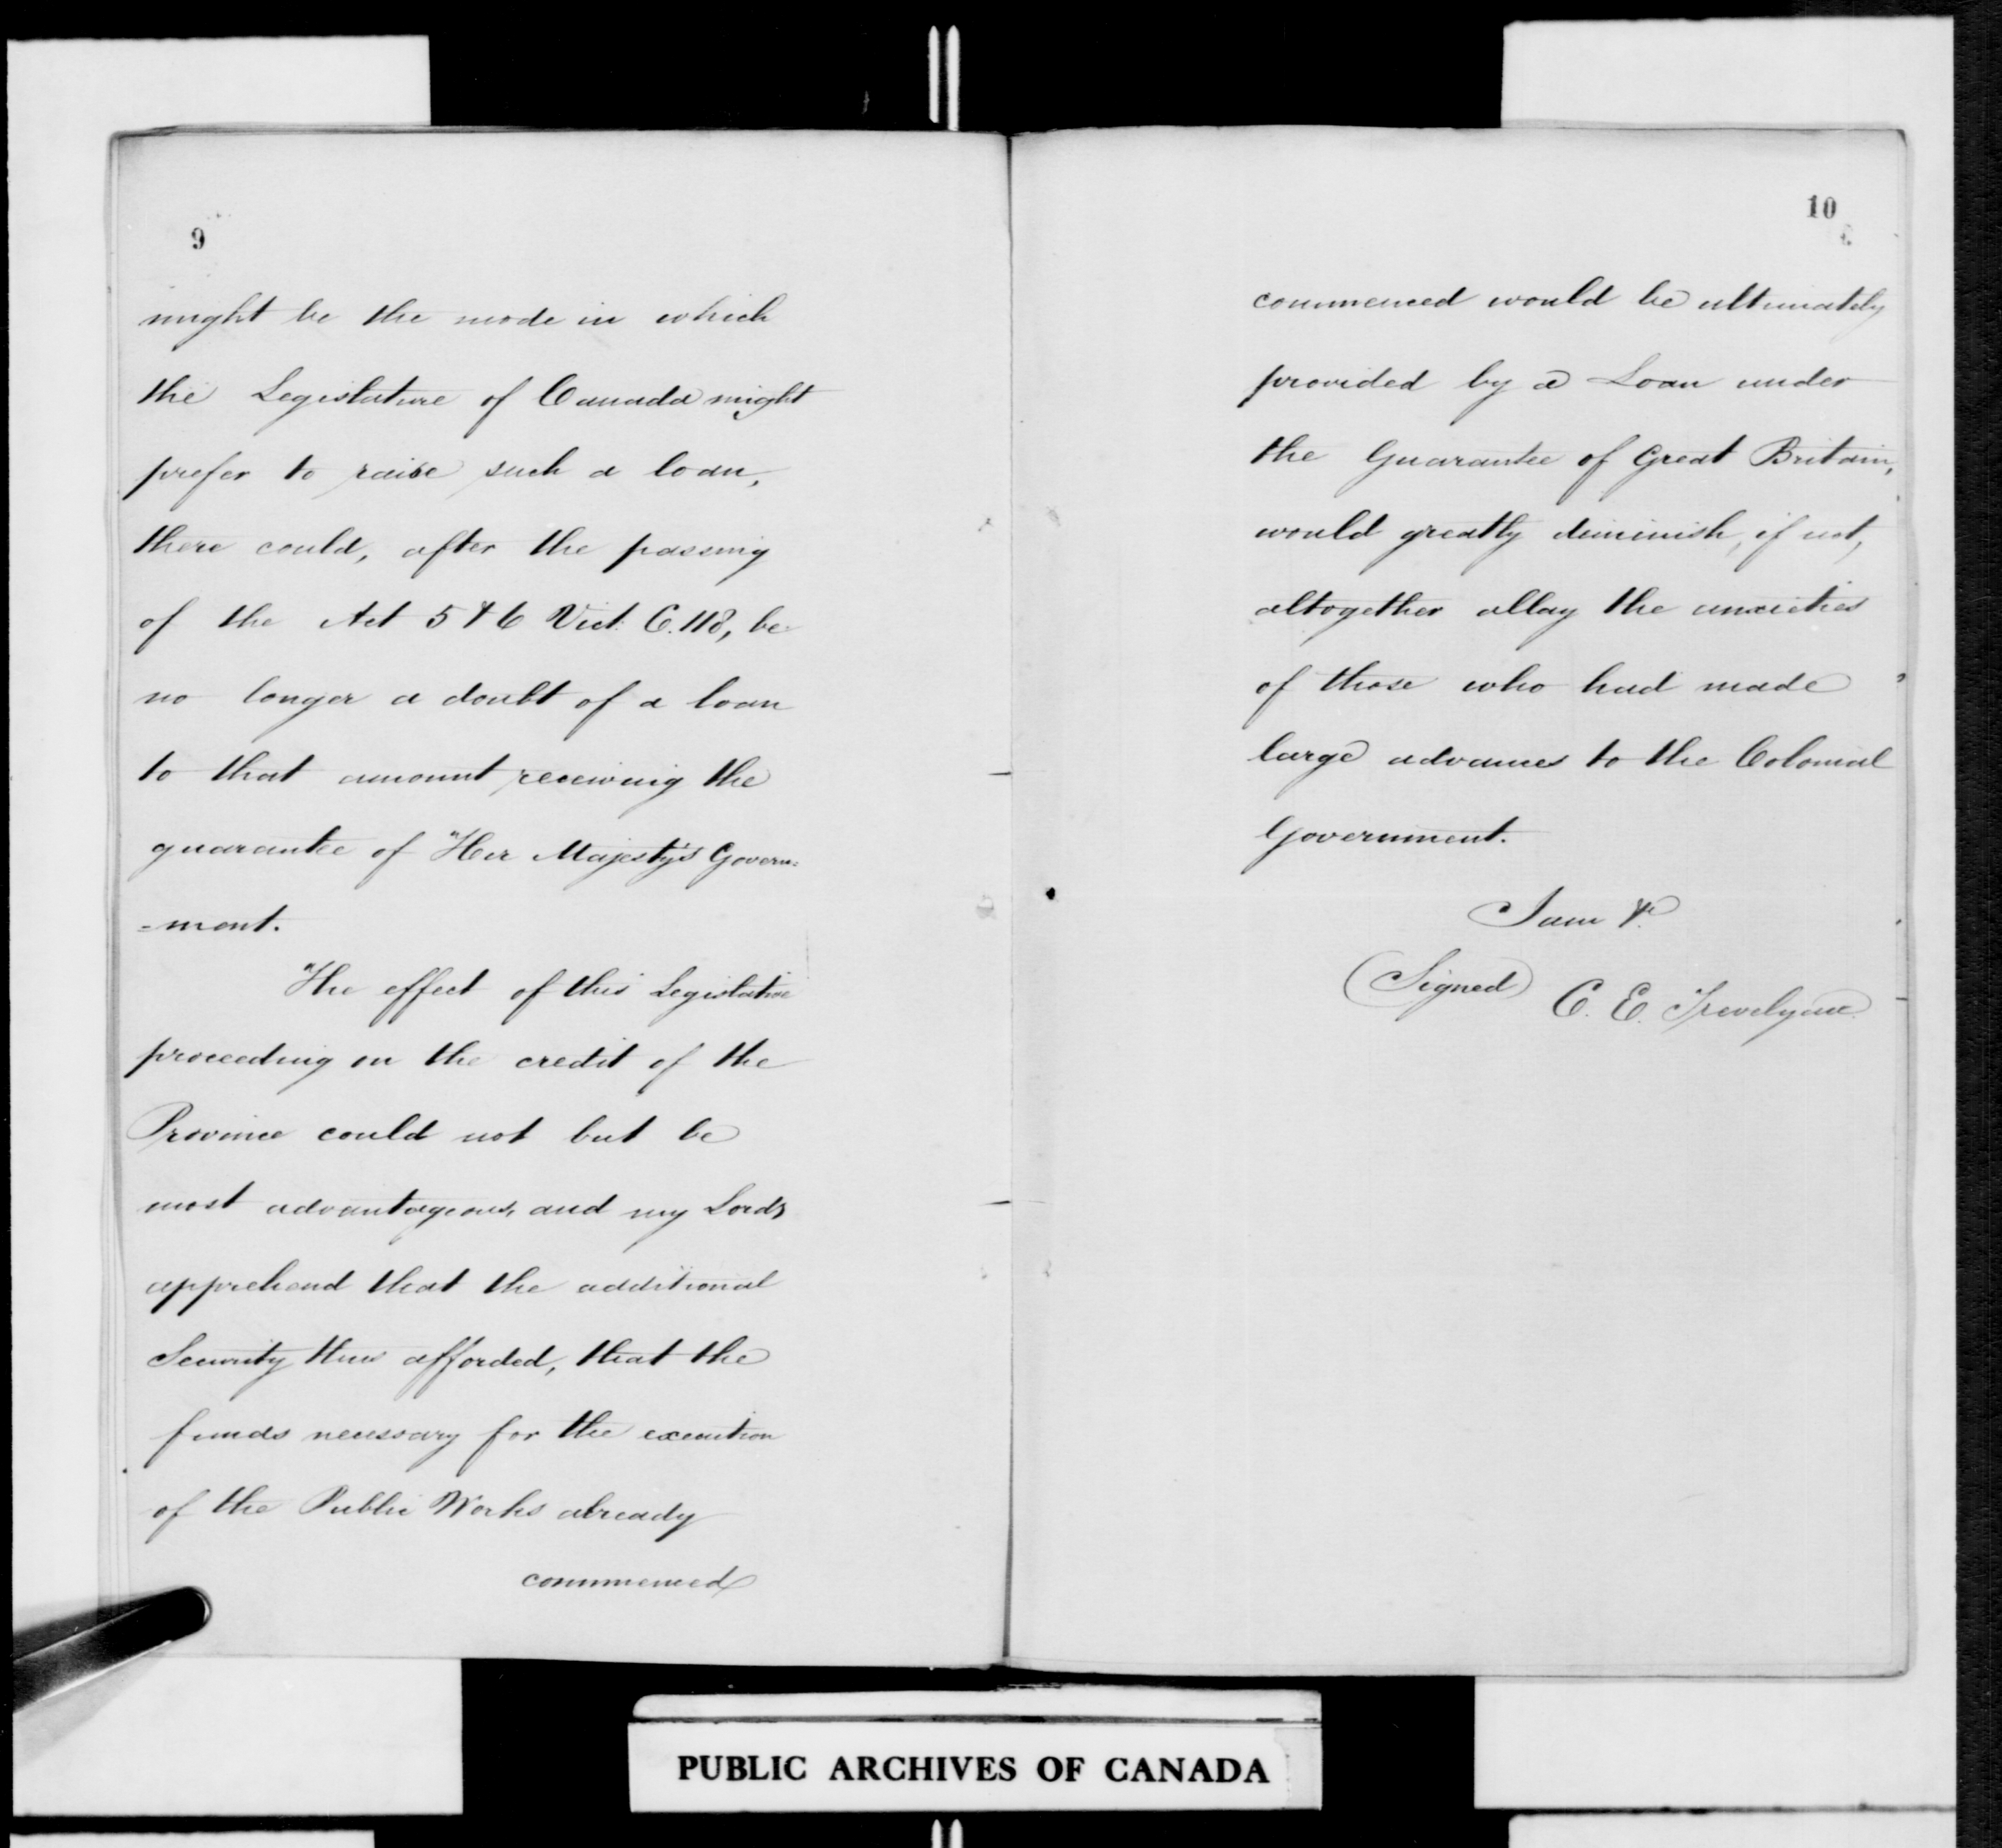 9
might be the mode in which
the Legislature of Canada might
prefer to raise such a loan,
there could, after the passing
of the Act 5 & 6 Vict. C. 118, be
no longer a doubt of a loan
to that amount receiving the
guarantee of Her Majesty's Govern=
=ment.
The effect of this Legislative
proceeding on the credit of the
Province could not but be
most advantageous, and my Lords
apprehend that the additional
Security thus afforded, that the
funds necessary for the execution
of the Public Works already
commenced
10
commenced would be ultimately
provided by a Loan under
the Guarantee of Great Britain,
would greatly diminish, if not,
altogether allay the anxieties
of those who had made
large advances to the Colonial
Government.
I am &c
(Signed) C. E. Trevelyan
PUBLIC ARCHIVES OF CANADA